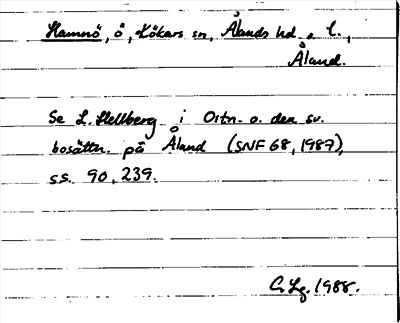 Hamnö, ö, Kökars sn, Ålands hd o. l.,
Åland.
Se L. Hellberg i Ortn. o. den sv.
bosättn. på Åland (SNF 68, 1987),
ss. 90, 239.
C. Lg. 1988.